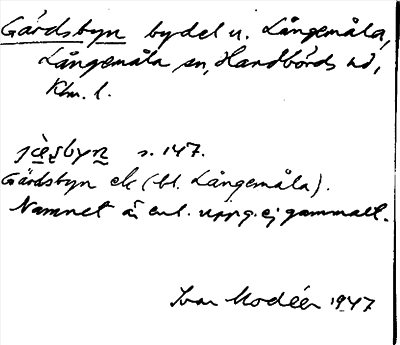 Gärdsbyn bydel u. Långemåla,
Långemåla sn, Handbörds hd,
Klm. l.
jæ̀sbyn s. 147.
Gärdsbyn ek (bl. Långemåla).
Namnet är enl. uppg. ej gammalt.
Ivar Modéer 1947